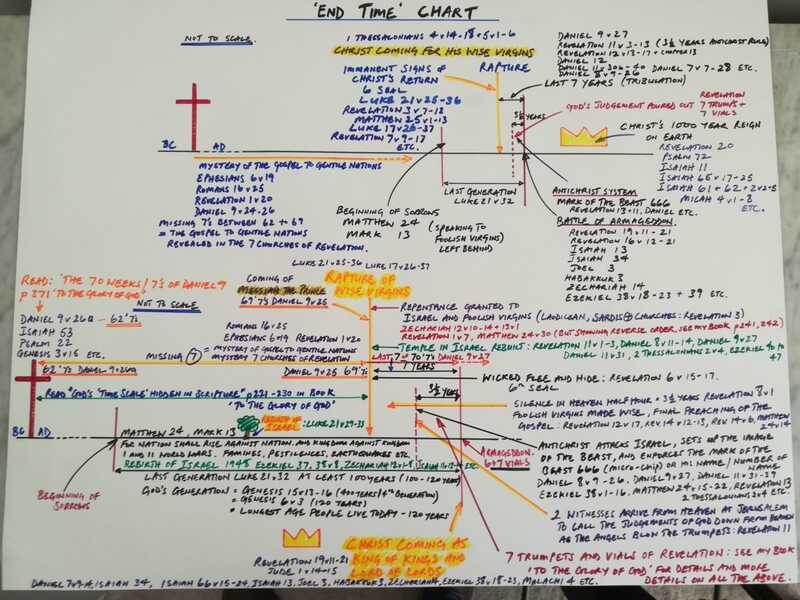 'END TIME' CHART
NOT TO SCALE.
1 THESSALONIANS 4v14-18+5v1-6
CHRIST COMING FOR HIS WISE VIRGINS
IMMANENT SIGNS OF
CHRIST'S RETURN
6 SEAL
LUKE 21v25-36
REVELATION 3v7-13
MATTHEW 25v1-13
LUKE 17v26-37
REVELATION 7v9-17
ETC.
RAPTURE
DANIEL 9v27
REVELATION 11v3-13 (3½ YEARS ANTICHRIST RULE)
REVELATION 12v13-17+CHAPTER 13
DANIEL 12
DANIEL 7v7-28 ETC.
DANIEL 8v9-26
LAST 7 YEARS (TRIBULATION)
3½ YEARS
REVELATION
GOD'S JUDGEMENT POURED OUT 7 TRUMPS+
7 VIALS
CHRIST'S 1000 YEAR REIGN
ON EARTH
REVELATION 20
PSALM 72
ISAIAH 11
ISAIAH 65v17-25
ISAIAH 61+62+2v2-5
MICAH 4v1-8
ETC.
BC
AD
MYSTERY OF THE GOSPEL TO GENTILE NATIONS
EPHESIANS 6v19
ROMANS 16v25
REVELATION 1v20
DANIEL 9v24-26
MISSING 7'S BETWEEN 62+69
= THE GOSPEL TO GENTILE NATIONS
REVEALED IN THE 7 CHURCHES OF REVELATION.
LAST GENERATION
LUKE 21v32
BEGINNING OF SORROWS
MATTHEW 24
MARK 13
(SPEAKING TO
FOOLISH VIRGINS)
LEFT BEHIND
ANTICHRIST SYSTEM
MARK OF THE BEAST 666
REVELATION 13+11, DANIEL ETC.
BATTLE OF ARMAGEDDON.
REVELATION 19v11-21
REVELATION 16v12-21
ISAIAH 13
ISAIAH 34
JOEL 3
HABAKKUK 3
ZECHARIAH 14
EZEKIEL 38v18-23+39 ETC.
LUKE 21v25-36 LUKE 17v26-37
READ: 'THE 70 WEEKS/7'S OF DANIEL 9
p271 'TO THE GLORY OF GOD'
NOT TO SCALE
DANIEL 9v26a - 62'7s
ISAIAH 53
PSALM 22
GENESIS 3v15 ETC.
COMING OF
MESSIAH THE PRINCE
69'7s DANIEL 9v25
RAPTURE OF
WISE VIRGINS
ROMANS 16v25
EPHESIANS 6v19 REVELATION 1v20
=MYSTERY OF GOSPEL TO GENTILE NATIONS
MYSTERY 7 CHURCHES OF REVELATION
MISSING 7
REPENTANCE GRANTED TO
ISRAEL AND FOOLISH VIRGINS (LAODICEAN, SARDIS CHURCHES: REVELATION 3)
ZECHARIAH 12v10-14+13v1
REVELATION 1v7, MATTHEW 24v30 (BUT SHOWING REVERSE ORDER, SEE MY BOOK p241, 242)
TEMPLE IN ISRAEL REBUILT: REVELATION 11v1-3, DANIEL 8v11-14, DANIEL 9v27
DANIEL 11v31, 2 THESSALONIANS 2v4, EZEKIEL 40 to
47
62'7s DANIEL 9v26a
DANIEL 9v25 69'7s
LAST 7 OF 70'7s DANIEL 9v27
7 YEARS
WICKED FLEE AND HIDE: REVELATION 6v15-17.
6th SEAL
READ "GOD'S 'TIME SCALE' HIDDEN IN SCRIPTURE" p221-230 IN BOOK
'TO THE GLORY OF GOD'
3½ YEARS
SILENCE IN HEAVEN HALF HOUR = 3½ YEARS REVELATION 8v1
FOOLISH VIRGINS MADE WISE, FINAL PREACHING OF THE
GOSPEL: REVELATION 12v17, REV 14v12-13, REV 14v6, MATTHEW
24v14
BC
AD
MATTHEW 24, MARK 13
REBIRTH OF
ISRAEL
:LUKE 21v29-33
FOR NATION SHALL RISE AGAINST NATION, AND KINGDOM AGAINST KINGDOM
1 AND 11 WORLD WARS. FAMINES, PESTILENCES, EARTHQUAKES ETC.
REBIRTH OF ISRAEL 1948 EZEKIEL 37, 38v8, ZECHARIAH 12v1-9, ETC
LAST GENERATION LUKE 21v32 AT LEAST 100 YEARS (100-120 YEARS)
GOD'S GENERATION = GENESIS 15v13-16 (400 YEARS/4th GENERATION)
= GENESIS 6v3 (120 YEARS)
= LONGEST AGE PEOPLE LIVE TODAY - 120 YEARS
BEGINNING OF
SORROWS
ARMAGEDDON
6+7 VIALS
ANTICHRIST ATTACKS ISRAEL, SETS UP THE IMAGE
OF THE BEAST, AND ENFORCES THE MARK OF THE
BEAST 666 (MICRO-CHIP) OR HIS NAME/NUMBER OF
NAME
DANIEL 8v9-26, DANIEL 9v27, DANIEL 11v31-37
EZEKIEL 38v1-16, MATTHEW 24v15-22, REVELATION 13
2 THESSALONIANS 2v4 ETC.
2 WITNESSES ARRIVE FROM HEAVEN AT JERUSALEM
TO CALL THE JUDGEMENTS OF GOD DOWN FROM HEAVEN
AS THE ANGELS BLOW THE TRUMPETS: REVELATION 11
CHRIST COMING AS
KING OF KINGS AND
LORD OF LORDS
REVELATION 19v11-21
JUDE 1v14-15
7 TRUMPETS AND VIALS OF REVELATION: SEE MY BOOK
'TO THE GLORY OF GOD' FOR DETAILS AND MORE
DETAILS ON ALL THE ABOVE.
DANIEL 7v9-14, ISAIAH 34, ISAIAH 66v15-24, ISAIAH 13, JOEL 3, HABAKKUK 3, ZECHARIAH 14, EZEKIEL 38v18-23, MALACHI 4 ETC.